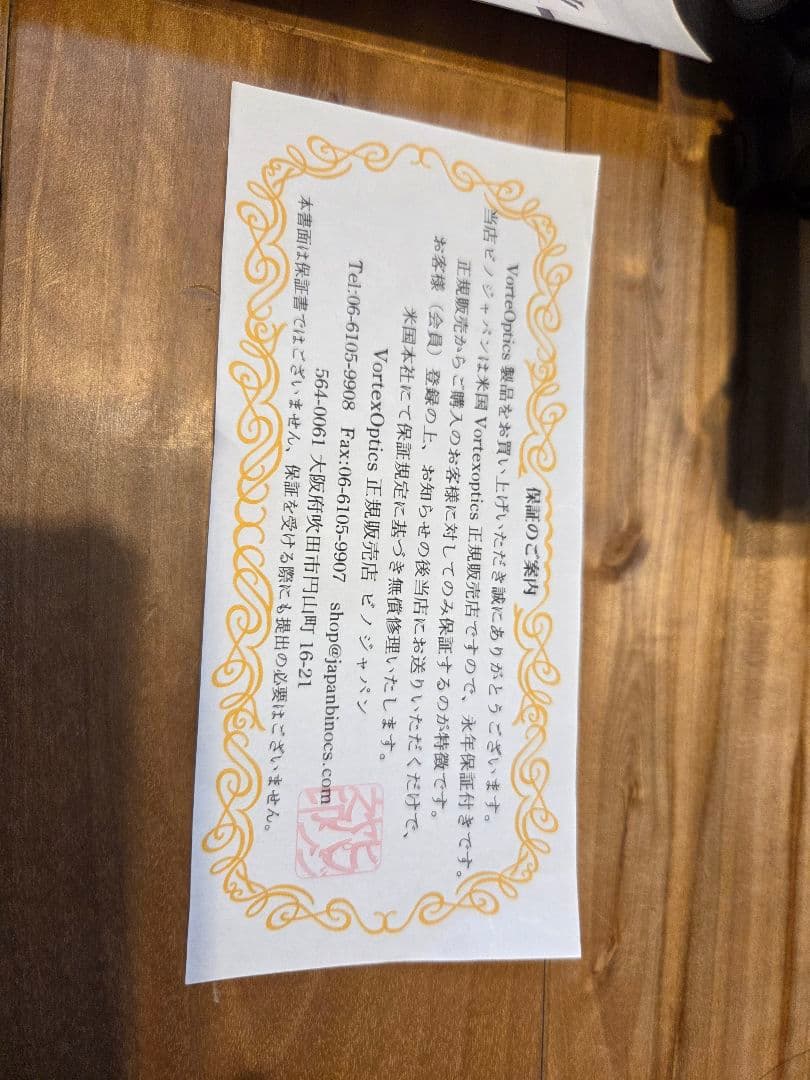 保証のご案内
VorteOptics 製品をお買い上げいただき誠にありがとうございます。
当店ビノジャパンは米国 Vortexoptics 正規販売店ですので、永年保証付きです。
正規販売からご購入のお客様に対してのみ保証するのが特徴です。
お客様（会員）登録の上、お知らせの後当店にお送りいただくだけで、
米国本社にて保証規定に基づき無償修理いたします。
VortexOptics 正規販売店 ビノジャパン
Tel:06-6105-9908 Fax:06-6105-9907 shop@japanbinocs.com
564-0061 大阪府吹田市円山町 16-21
本書面は保証書ではございません、保証を受ける際にも提出の必要はございません。